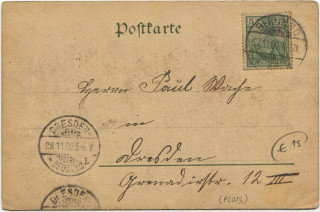 Postkarte
Herrn Paul Wache
in
Dresden
Grenadirstr. 12 III
DRESDEN-
28.11.00.5-6.N
DRESDEN
£ 15